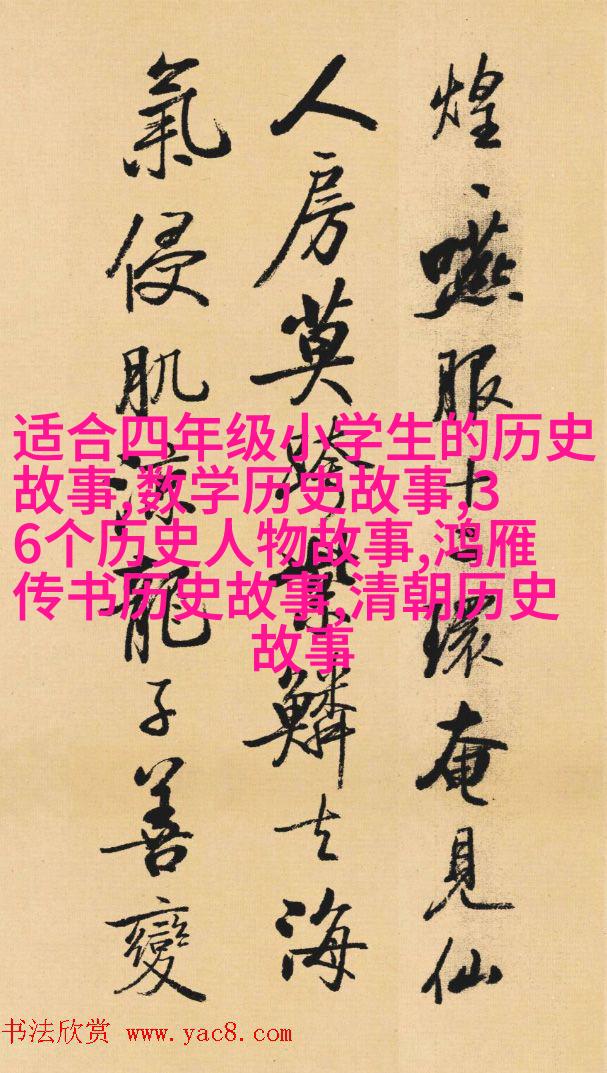 煌、嚥服十二環奄見仙
人房莫跨紫鱗去海
氣侵肌涼龍子善變
适合四年级小学生的历史
故事,数学历史故事,3
6个历史人物故事,鸿雁
传书历史故事,清朝历史
故事
书法欣赏 www.yac8.com